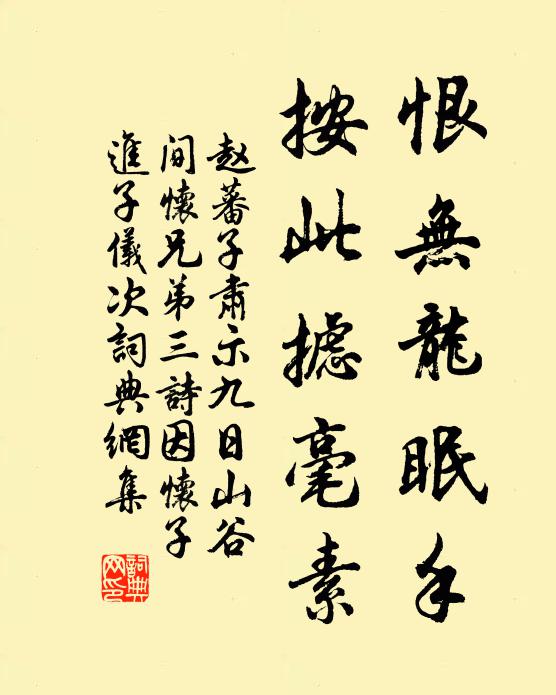 恨無龍眠手
按此攄毫素
赵蕃子肅示九日山谷
间懷兄弟三詩因懷子
進子儀次詞典網集
詞典网印